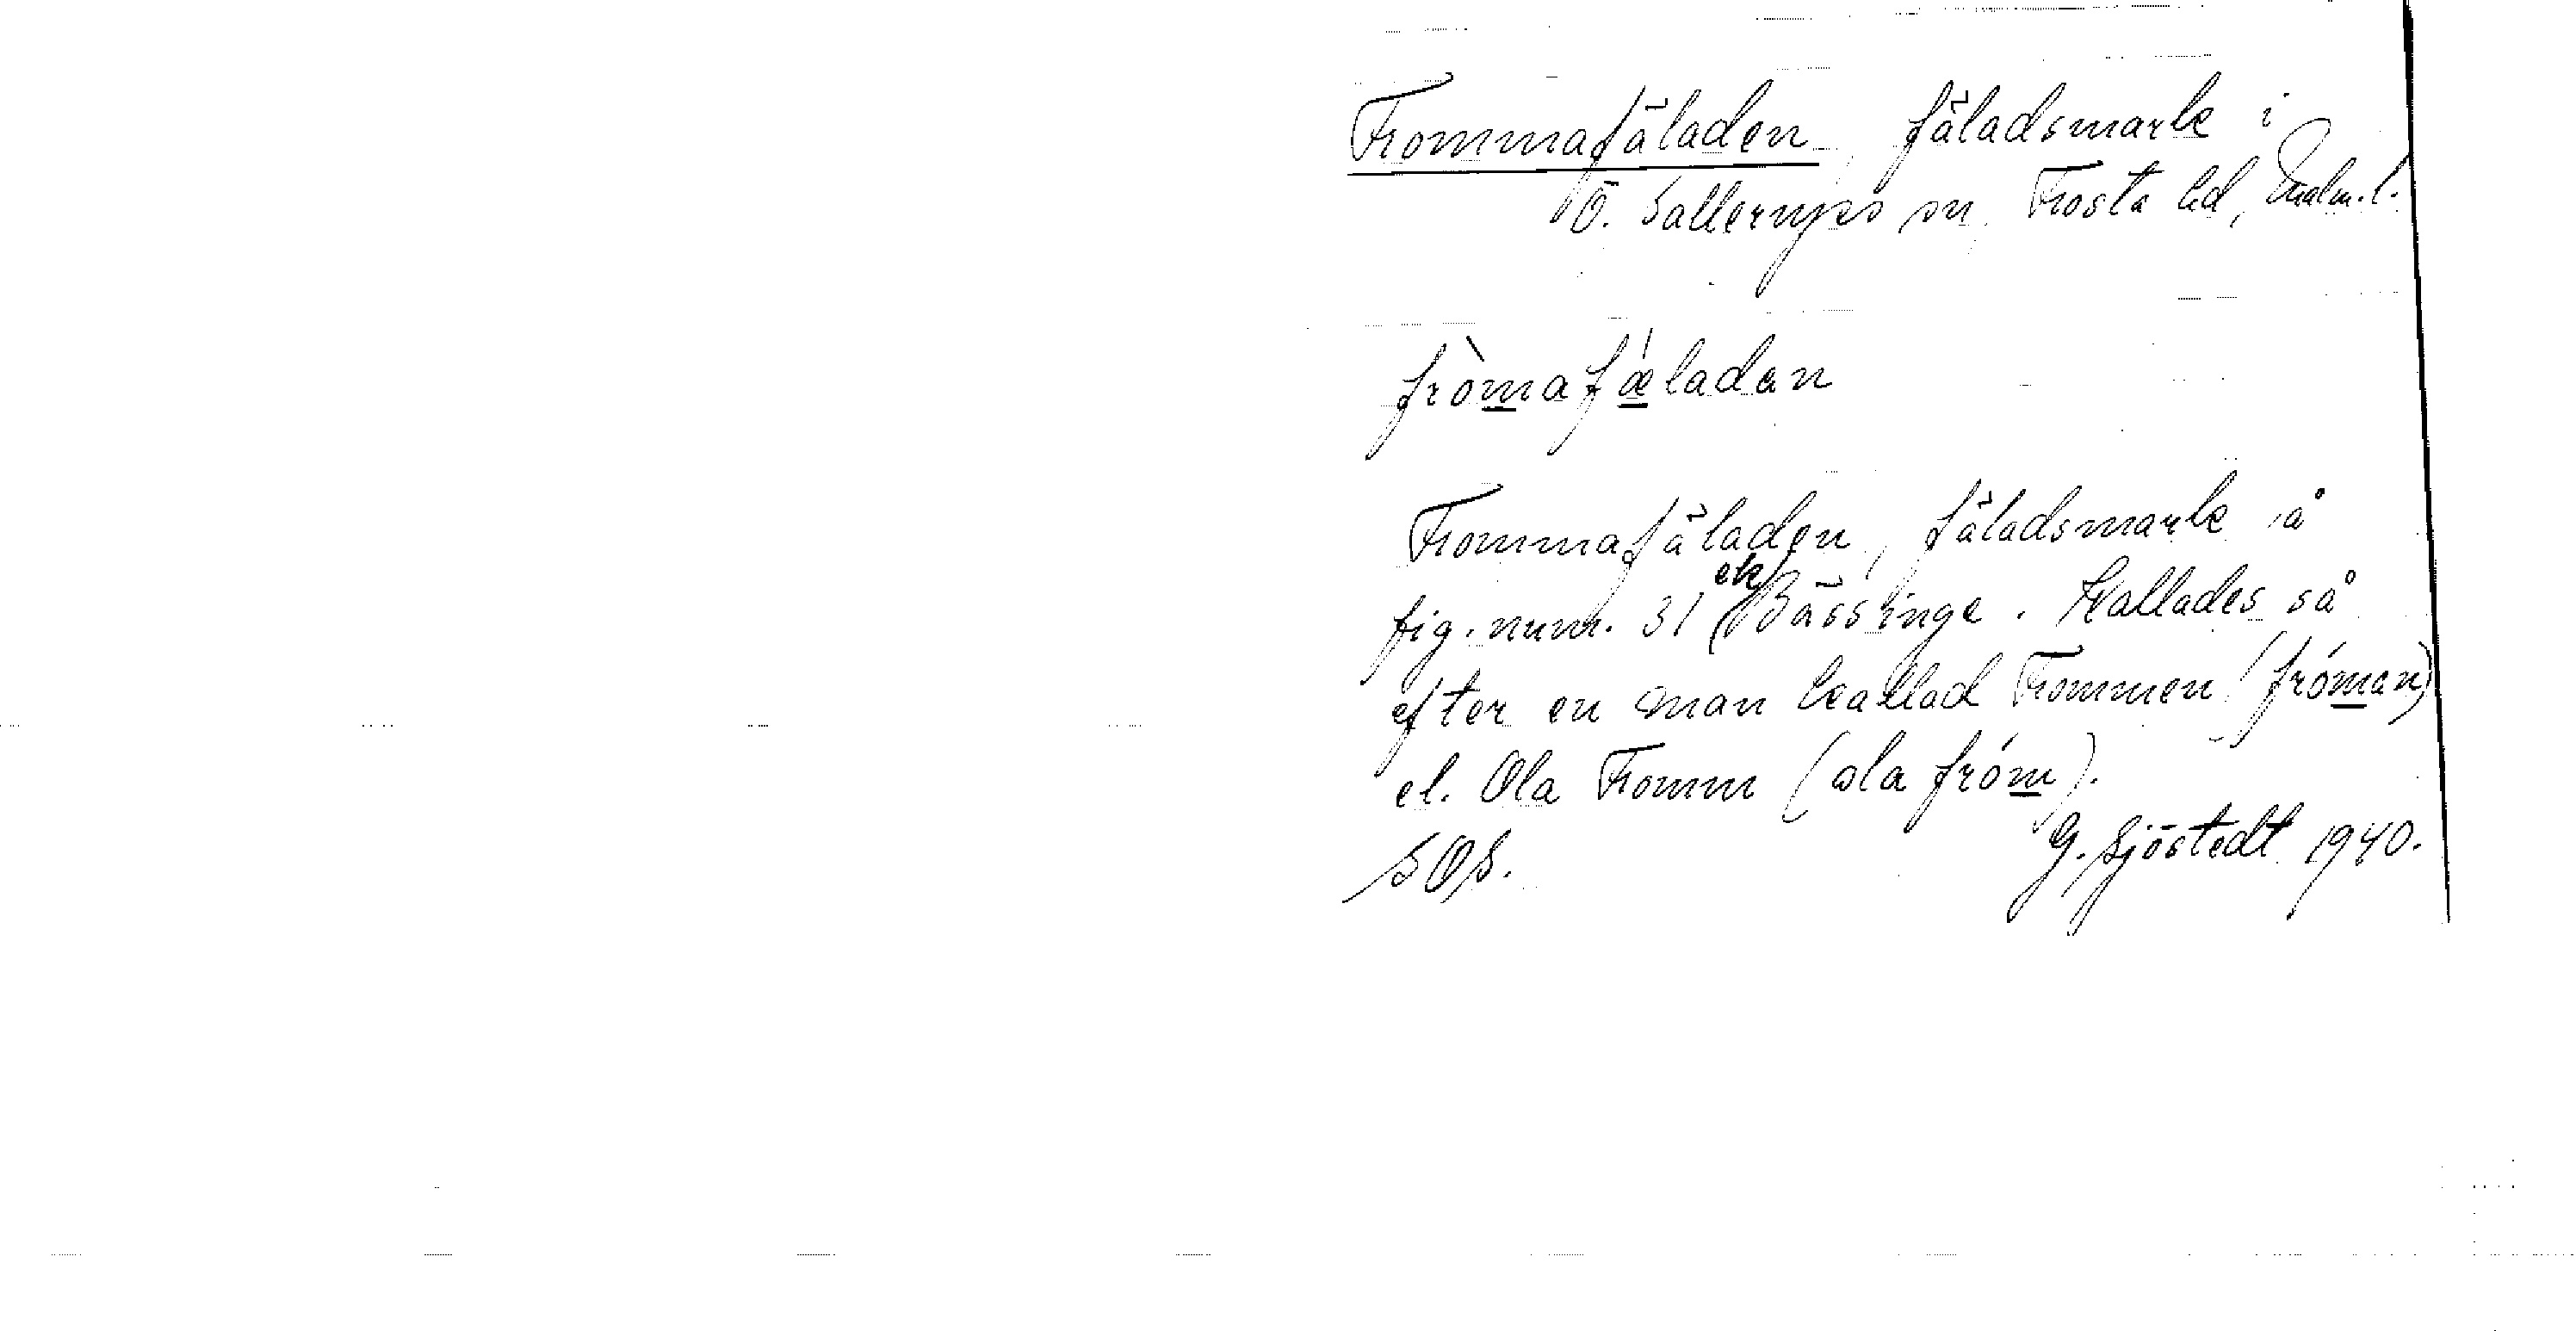 Frommafäladen, fäladsmark i
Ö. Sallerups sn, Frosta hd, Malm. l.
fròmafǽladan
Frommafäladen, fäladsmark å
fig. num. 31 (ek) Bässinge. Kallades så
efter en man kallad Frommen (fróman)
el. Ola Fromm (ola fróm).
SOS. G. Sjöstedt 1940.